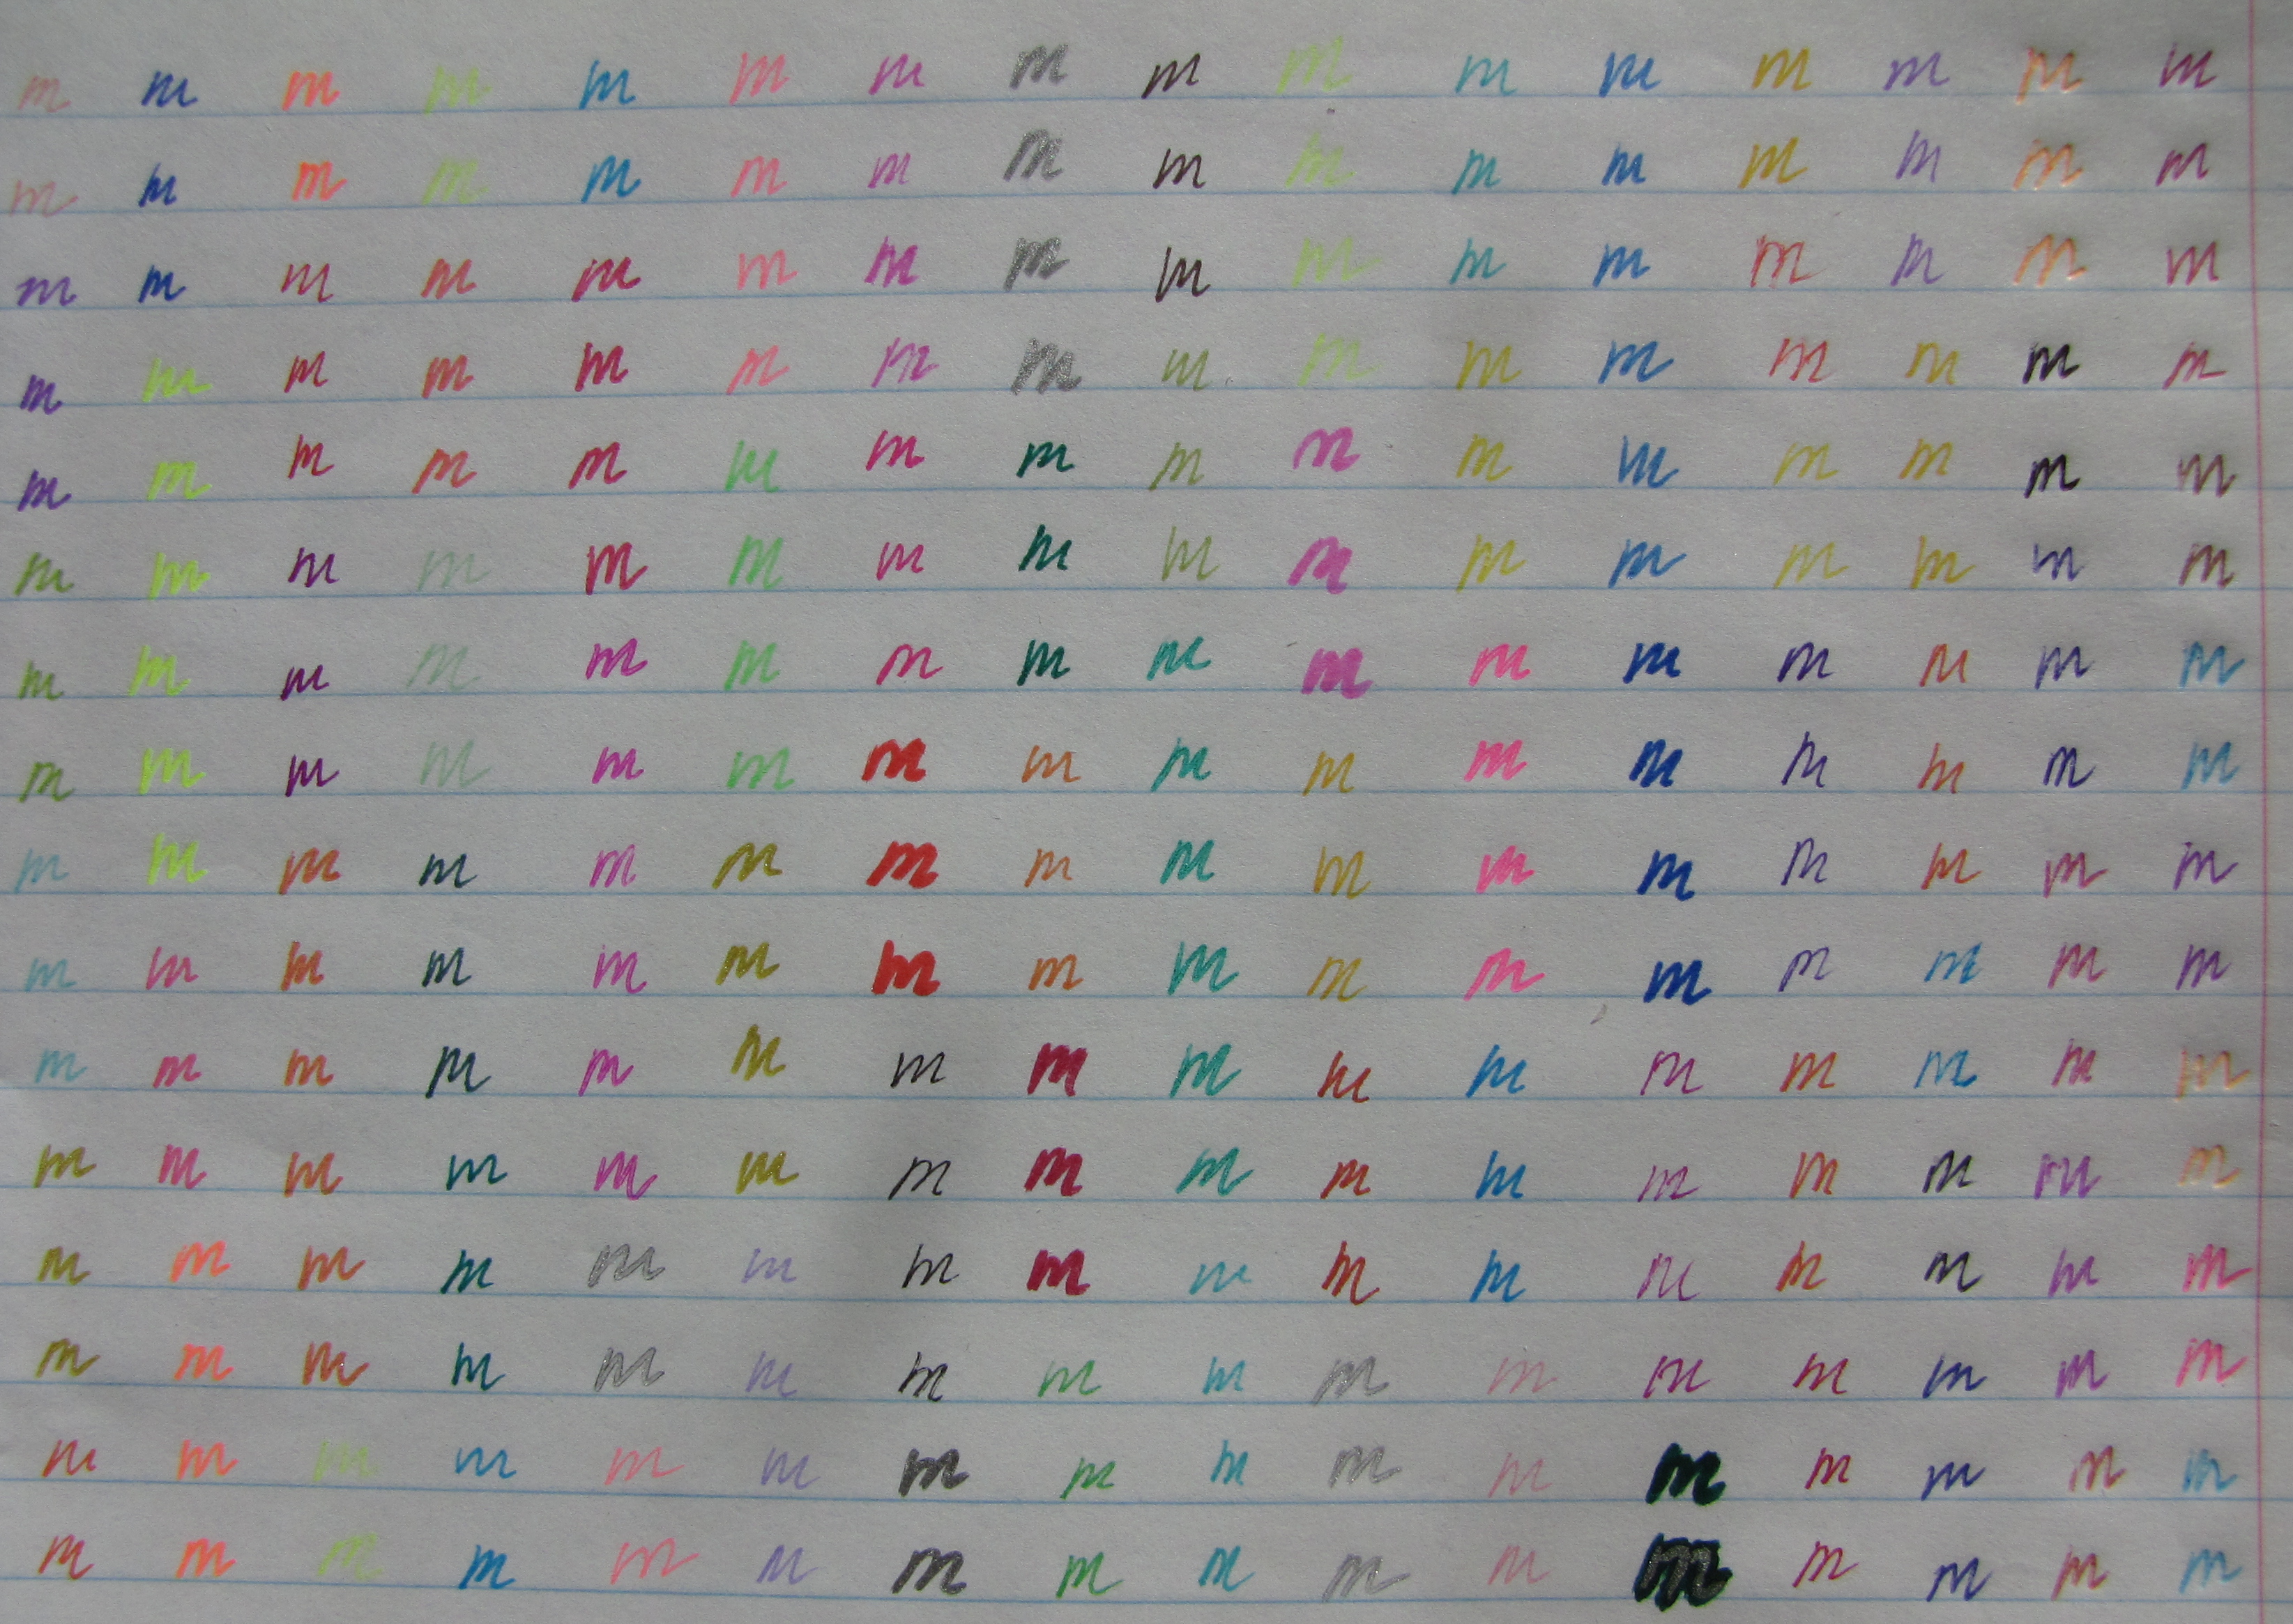 m m m m m m m m m m m m m m m m
m m m m m m m m m m m m m m m m
m m m m m m m m m m m m m m m m
m m m m m m m m m m m m m m m m
m m m m m m m m m m m m m m m m
m m m m m m m m m m m m m m m m
m m m m m m m m m m m m m m m m
m m m m m m m m m m m m m m m m
m m m m m m m m m m m m m m m m
m m m m m m m m m m m m m m m m
m m m m m m m m m m m m m m m m
m m m m m m m m m m m m m m m m
m m m m m m m m m m m m m m m m
m m m m m m m m m m m m m m m m
m m m m m m m m m m m m m m m m
m m m m m m m m m m m m m m m m